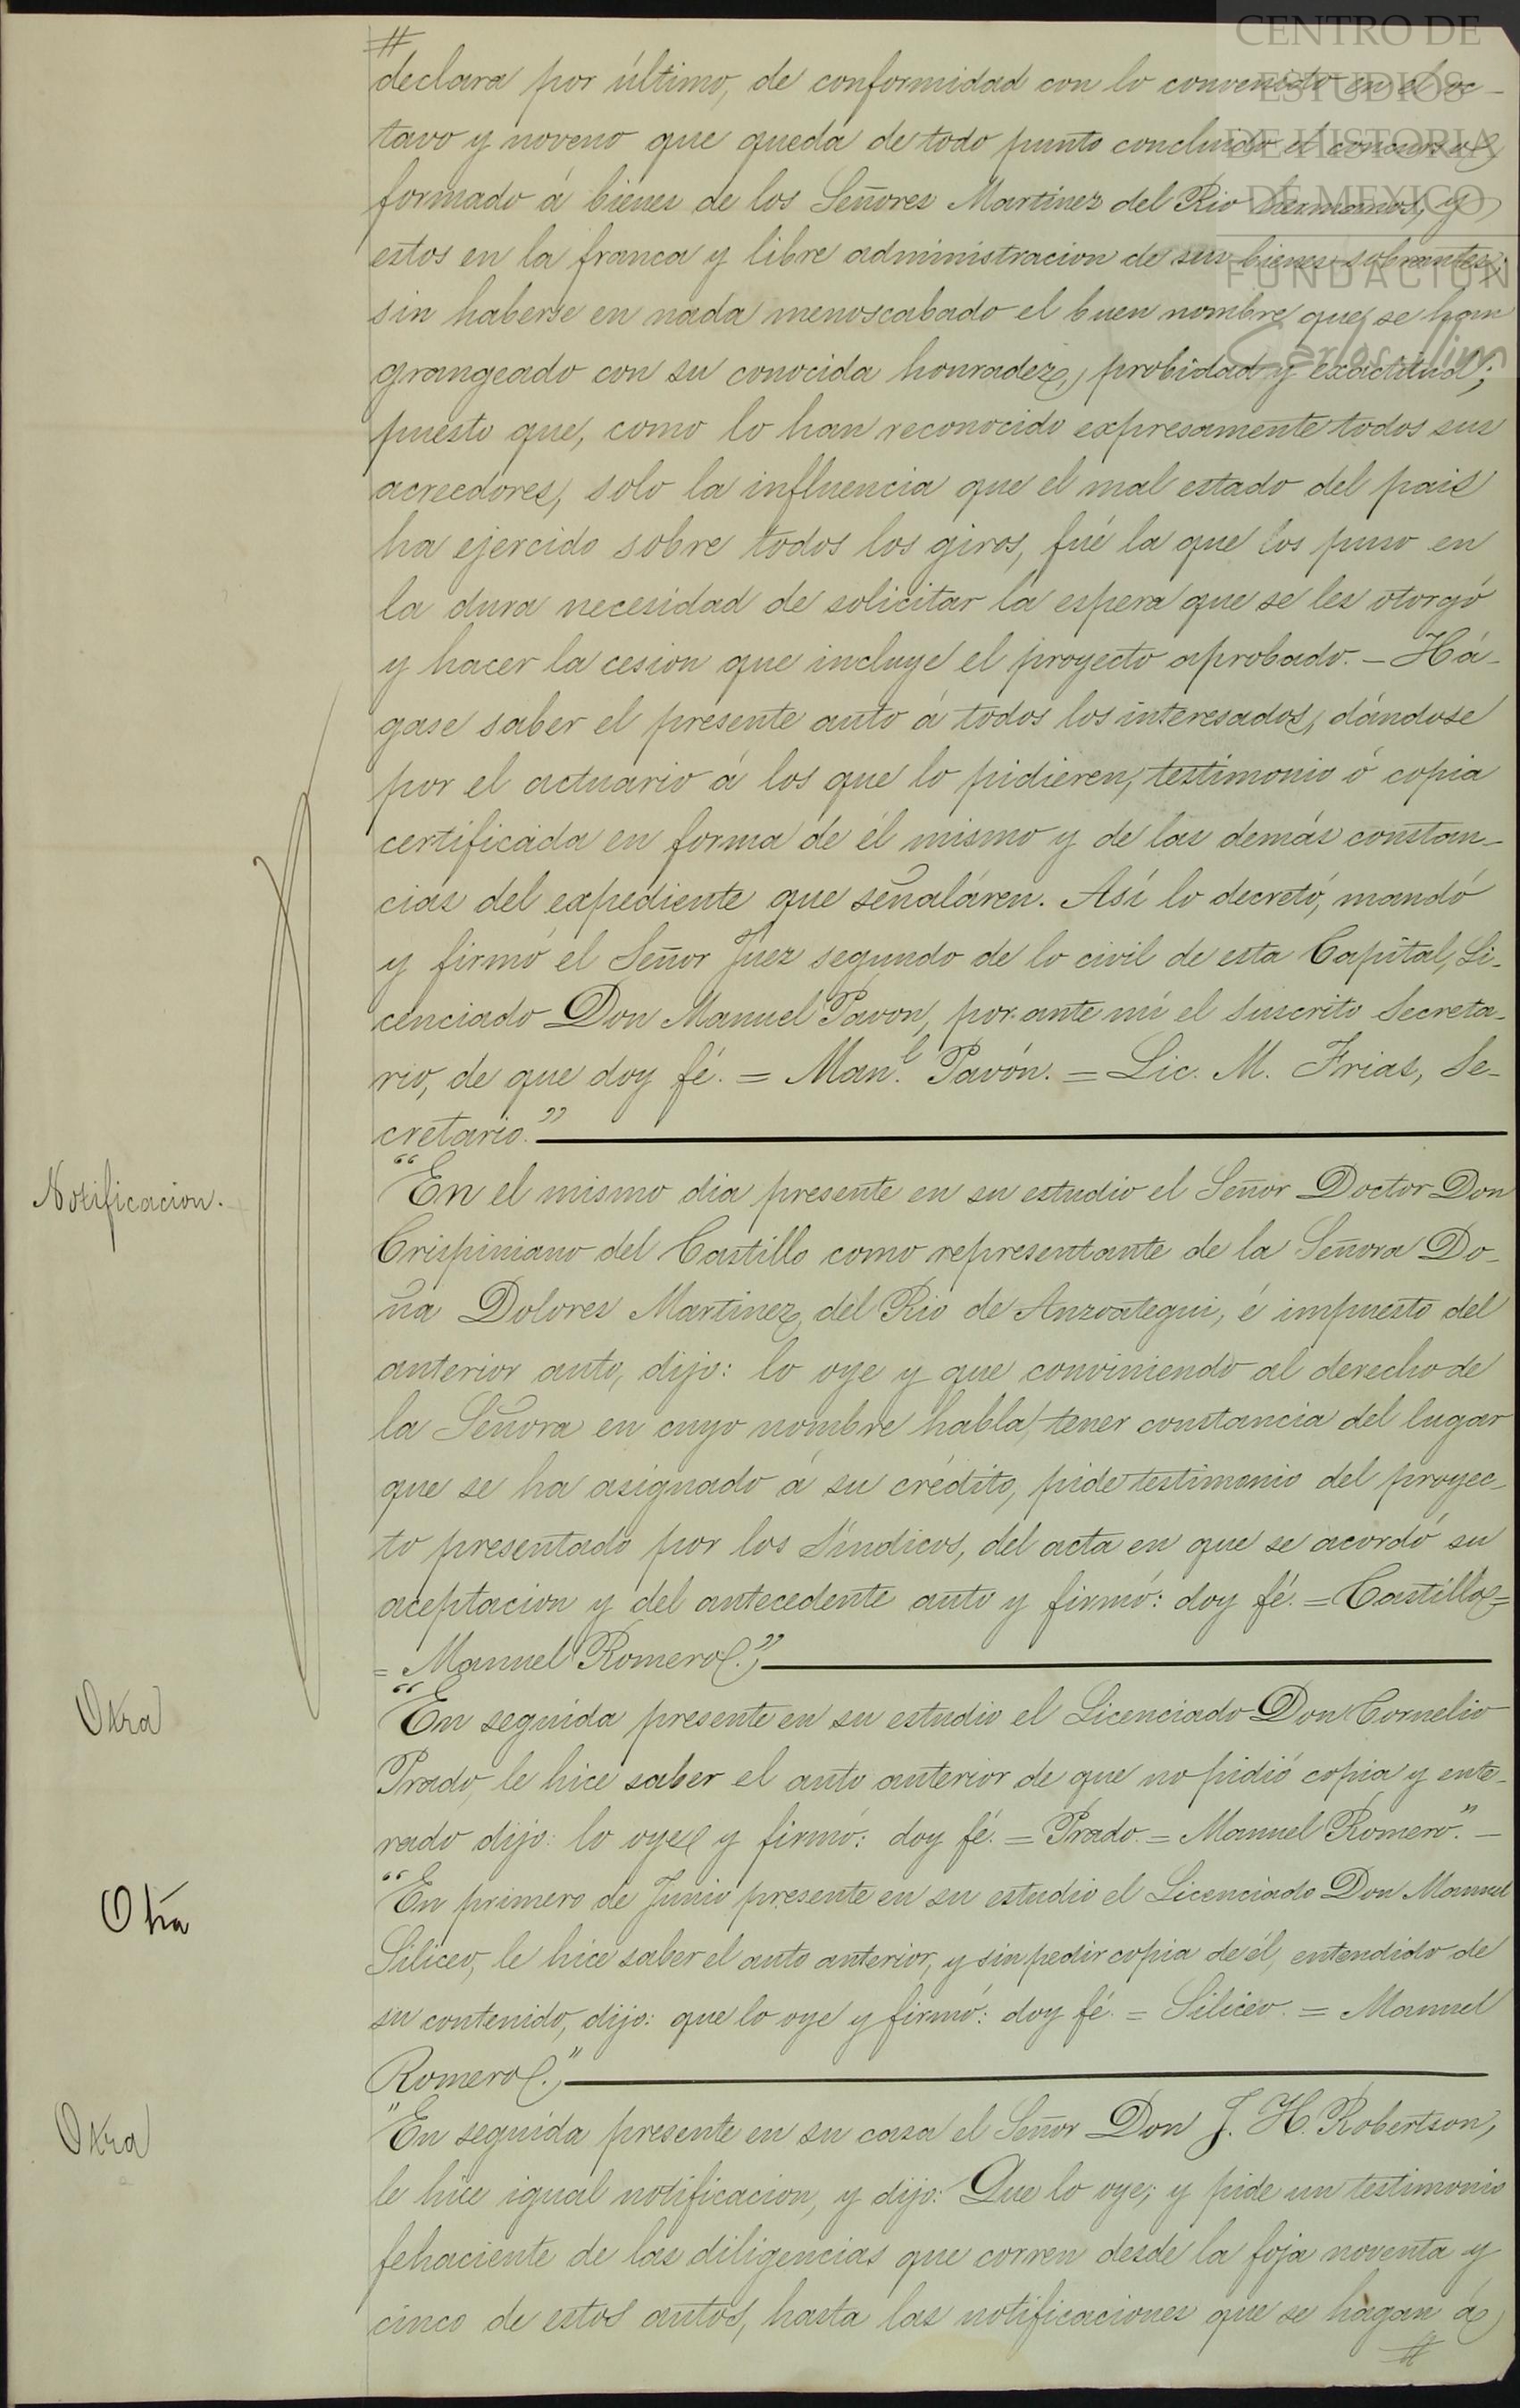 CENTRO DE
ESTUDIOS
DE HISTORIA
DE MEXICO
FUNDACION
Carlos Slim
#
declara por último, de conformidad con lo convenido en el oc-
tavo y noveno que queda de todo punto concluido el concurso
formado á bienes de los Señores Martinez del Rio hermanos, y
estos en la franca y libre administracion de sus bienes sobrantes;
sin haberse en nada menoscabado el buen nombre que se han
grangeado con su conocida honradez, probidad y exactitud;
puesto que, como lo han reconocido expresamente todos sus
acreedores, solo la influencia que el mal estado del pais
ha ejercido sobre todos los giros, fué la que los puso en
la dura necesidad de solicitar la espera que se les otorgó
y hacer la cesion que incluye el proyecto aprobado. - Há-
gase saber el presente auto á todos los interesados, dándose
por el actuario á los que lo pidieren, testimonio ó copia
certificada en forma de él mismo y de las demás constan-
cias del expediente que señaláren. Así lo decretó, mandó
y firmó el Señor Juez segundo de lo civil de esta Capital, Li-
cenciado Don Manuel Pavon, por ante mí el suscrito Secreta-
rio, de que doy fé. = Man.l Pavón. = Lic. M. Frias, Se-
cretario."
Notificacion.
"En el mismo dia presente en su estudio el Señor Doctor Don
Crispiniano del Castillo como representante de la Señora Do-
ña Dolores Martinez del Rio de Anzoategui, é impuesto del
anterior auto, dijo: lo oye y que conviniendo al derecho de
la Señora en cuyo nombre habla, tener constancia del lugar
que se ha asignado á su crédito, pide testimonio del proyec-
to presentado por los Síndicos, del acta en que se acordó su
aceptacion y del antecedente auto y firmó: doy fé. = Castillo =
= Manuel Romero."
Otra
"En seguida presente en su estudio el Licenciado Don Cornelio
Prado, le hice saber el auto anterior de que no pidió copia y ente-
rado dijo: lo oye y firmó: doy fé. = Prado. = Manuel Romero." -
Otra
"En primero de Junio presente en su estudio el Licenciado Don Manuel
Siliceo, le hice saber el auto anterior, y sin pedir copia de él, entendido de
su contenido, dijo: que lo oye y firmó: doy fé. = Siliceo. = Manuel
Romero."
Otra
"En seguida presente en su casa el Señor Don J. H. Robertson,
le hice igual notificacion, y dijo: Que lo oye; y pide un testimonio
fehaciente de las diligencias que corren desde la foja noventa y
cinco de estos autos, hasta las notificaciones que se hagan á
#